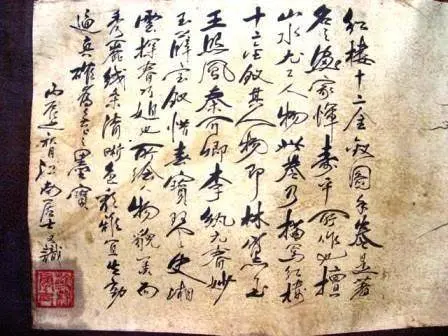 紅樓十二金釵圖手卷是著
名之畫家惲壽平所作也擅
山水尤工人物此卷乃描寫紅樓
十二金釵其人物即林黛玉
王熙鳳秦可卿李紈元春妙
玉薛寶釵惜春寶琴史湘
雲探春巧姐也所繪人物貌美而
秀麗綫条清晰色彩雅宜生動
逼真確為之墨寶
丙辰之秋月江南居士識